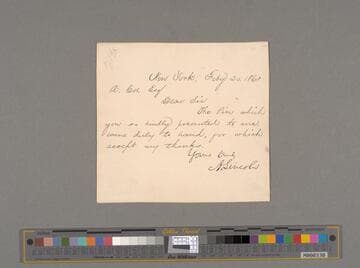 New York, Feby 20. 1861
A. Cox Esq
Dear Sir
The Pin which
you so kindly presented to me,
came duly to hand, for which
accept my thanks.
Yours truly
A Lincoln
M000330